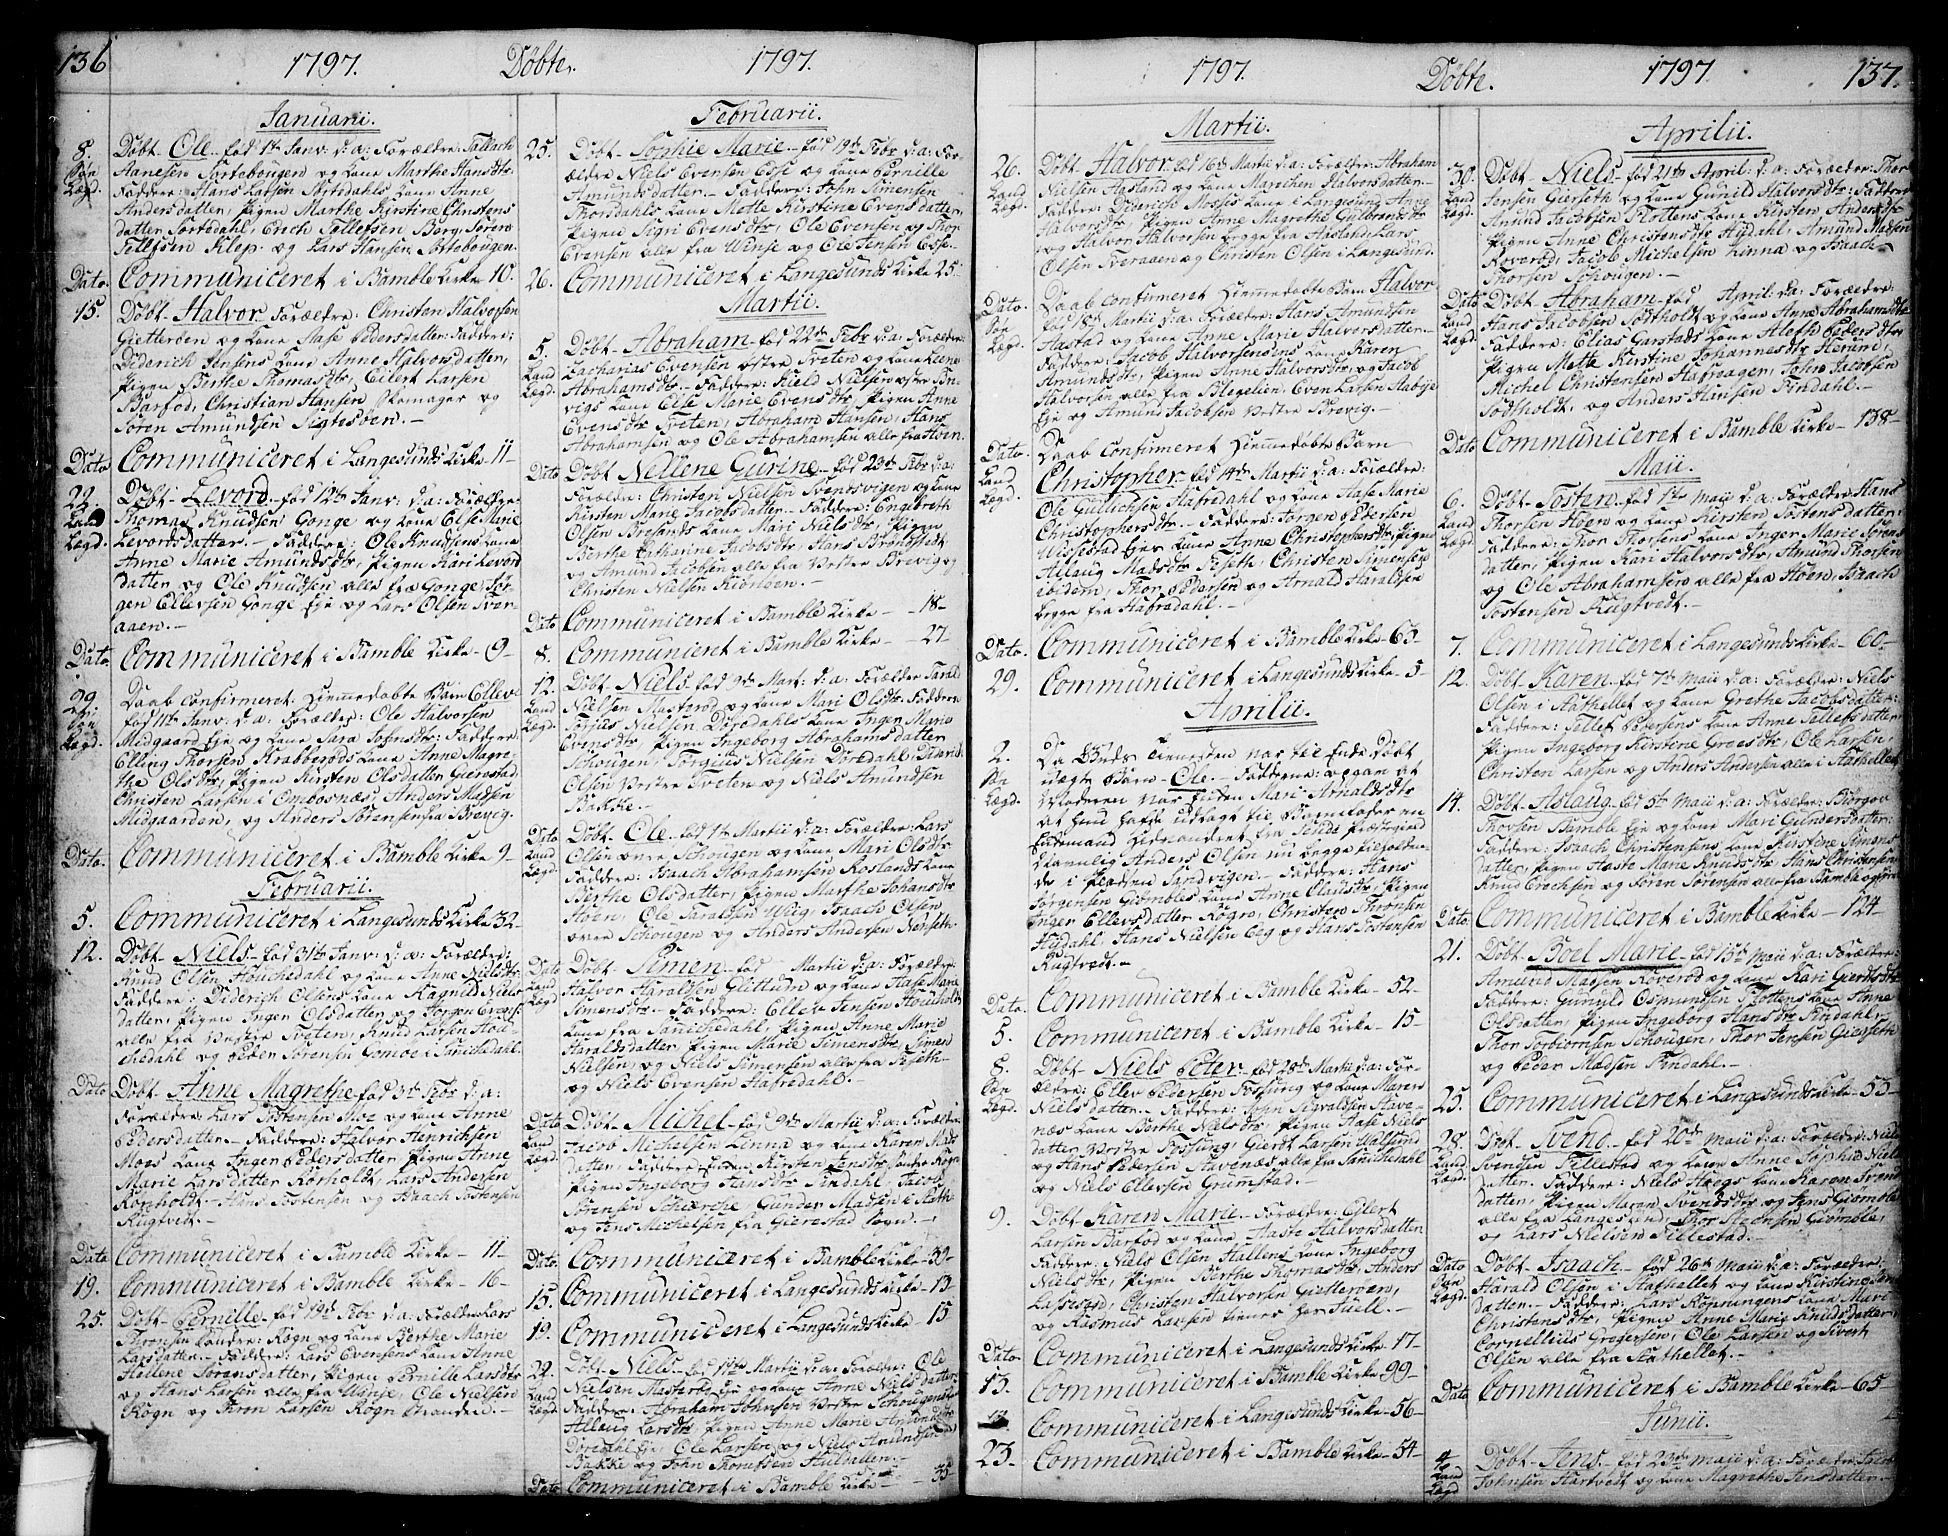 136
1797. Döbte. 1797.
Januarii.
8. Döbt Ole. fød 1te Janv: d: a: Forældre: Tallach
Søn Hansen Tortebougen og Kone Marthe Hansdtr
Lægd. Faddere: Hans Larsen Tortedahls Kone Anne
Andersdatter, Pigen Marthe Kirstine Christens
datter Tortedal, Erich Tellefsen Borg, Søren
Tellefsen Klep og Lars Hansen Tortebougen.
Dato. Communiceret i Bamble Kirke 10.
15. Döbt Halvor. Forældre: Christen Halvorsen
Gietteröen og Kone Aase Pedersdatter: Faddere:
Diderich Jensens Kone Anne Halvorsdatter,
Pigen Berthe Thomasdtr, Eilert Larsen
Barfod, Christian Hansen Skomager og
Sören Amundsen Sigtesöen.
Dato Communiceret i Langesunds Kirke 11
22. Döbt Levord. fød 12te Janv: d: a: Forældre:
Land Thomas Knudsen Gonge og Kone Else Marie
Lægd. Levordsdatter. Faddere: Ole Knudsens Kone
Anne Marie Amundsdtr, Pigen Kari Levord
datter og Ole Knudsen alle fra Gonge, Jör-
gen Ellevsen Gonge Eje og Lars Olsen Tver-
aaen.
Dato. Communiceret i Bamble Kirke 9
29. Daab confirmeret Hjemmedøbte Barn Elleve
Søn fød 11te Janv: d: a: Forældre: Ole Halvorsen
Lægd. Midgaard Eje og Kone Sara Johnsdtr: Faddere:
Elling Thorsen Krabberøds Kone Anne Magre-
the Olsdtr, Pigen Kirsten Olsdatter Gierestad,
Christen Larsen i Ombosnæs, Anders Madsen
Midgaarden, og Anders Sörensen fra Brevig.
Dato. Communiceret i Bamble Kirke 9
Februarii.
5. Communiceret i Langesunds Kirke 32
12. Döbt Niels. fød 31te Janv: d: a: Forældre:
Knud Olsen Houchedahl og Kone Anne Nielsdtr:
Faddere: Diderich Olsens Kone Ragnild Niels
datter, Pigen Inger Olsdatter og Jörgen Erichs:
alle fra Vestre Tveten, Knud Larsen Hou-
chedahl og Peder Sörensen Gomoe i Sanichedahl.
Dato Döbt Anne Magrethe fød 3de Febr: d: a:
Forældre: Lars Tostensen Moe og Kone Anne
Pedersdatter. Faddere: Halvor Henrichsen
Moes Kone Inger Pedersdatter Pigen Anne
Marie Larsdatter Rörholdt, Lars Andersen
Rörholdt. Hans Tostensen og Isaach Tostensen
Rugtvedt.
Dato Communiceret i Bamble Kirke 11
19. Communiceret i Bamble Kirke 16
25. Döbt Pernille. fød 19de Febr: d: a: Forældre Lars
Thronsen söndre Rögn og Kone Berthe Marie
Larsdatter. Faddere: Lars Evensens Kone Anne
Hellene Joransdatter, Pigen Pernille Larsdtr
og Hans Larsen alle fra Winje, Ole Nielsen
Rögn og Thron Larsen Rögn Stranden.
Februarii.
25. Döbt Sophie Marie. fød 19de Febr: d: a: For-
ældre Niels Evensen Esse og Kone Pernille
Amundsdatter. Faddere: John Simensen
Thorsdahls Kone Mette Kirstine Evensdatter,
Pigen Sigri Evensdtr, Ole Evensen og Thor
Evensen alle fra Winje og Ole Jensen Esse.
26. Communiceret i Langesunds Kirke 25
Martii.
5. Döbt Abraham. fød 22de Febr: d: a: Forældre
Land Zacharias Evensen østre Tveten og Kone Lene
Lægd. Abrahamsdtr. Faddere: Kield Nielsen østre Bre-
vigs Kone Else Marie Evensdtr, Pigen Anne
Evensdtr Tveten, Abraham Hansen, Hans
Abrahamsen og Ole Abrahamsen alle fra Hoen.
Dato Döbt Nellene Gurine. fød 23de Febr: d: a:
Forældre: Christen Nielsen Svendsvigen og Kone
Kirsten Marie Jacobsdatter. Faddere: Engebreth
Olsen Bresands Kone Mari Nielsdtr, Pigen
Berthe Catharine Jacobsdtr, Hans Brönstedt
og Amund Jacobsen alle fra Vestre Brevig og
Christen Nielsen Kiönöen.
Dato Communiceret i Bamble Kirke 18
8. Communiceret i Bamble Kirke 27
12. Döbt Niels. fød 9de Mart: d: a: Forældre Tarald
Land Nielsen Masteröd og Kone Mari Olsdtr. Faddere:
Lægd. Torjus Nielsen Dördahls Kone Ingen Marie
Evensdtr, Pigen Ingeborg Abrahamsdatter
Schougen, Torgius Nielsen Dördahl, David
Olsen Vestre Tveten og Niels Amundsen
Bakke.
Dato Döbt Ole. fød 1te Martii d: a: Forældre: Lars
Land Olsen øvre Schougen og Kone Mari Olsdtr
Lægd. Faddere: Isaach Abrahamsen Roslands Kone
Berthe Olsdatter, Pigen Marthe Johansdtr
Hoen, Ole Taraldsen Weig, Isaach Olsen
øvre Schougen og Anders Andersen Renseth.
Dato Döbt Simen. fød Martii d: a: Forældre:
Land Halvor Haraldsen Glittum og Kone Hase Marie
Lægd Simensdtr. Faddere: Ellev Jensen Houholdt
Kone fra Sanichedahl, Pigen Anne Marie
Haraldsdatter, Pigen Marie Simensdtr, Simen
Nielsen, og Niels Simensen alle fra Feseth
og Niels Evensen Hafredahl.
Dato Döbt Michel. fød 9de Martii d: a: Forældre
Land Jacob Michelsen Linna og Kone Karen Mads
Lægd. datter. Faddere: Enken Kirsten Jensdtr söndre Rögn
Pigen Ingeborg Hansdtr Findahl, Jacob
Sörensen Scherche, Gunder Madsen i Aasth
og Jens Michelsen fra Gierestad Sogn.
Dato. Communiceret i Bamble Kirke 39
15. Communiceret i Langesunds Kirke 13
19. Communiceret i Langesunds Kirke 15
22. Döbt Niels. fød 17de Martii d: a: Forældre: Ole
Land Nielsen Masteröd Eje og Kone Anne Nielsdatter
Lægd Faddere: Abraham Johnsen Vestre Schougens Kone
Allaug Larsdtr, Pigen Anne Marie Amundsdtr
Dördahl Eje, Ole Larsen og Niels Amundsen
Bakke og John Thorsen Huldatten.
Dato Communiceret i Bamble Kirke 35
1797. Döbte. 1797. 137.
Martii.
26. Döbt Halvor fød 16de Martii d: a: Forældre: Abraham
Land Nielsen Aastad og Kone Marichen Halvorsdatter
Lægd. Faddere: Diderich Mosses Kone i Langesund Anne
Halvorsdtr, Pigen Anne Magrethe Gulbrandsdtr
og Halvor Halvorsen begge fra Aastad, Lars
Olsen Tveraaen og Christen Olsen i Langesund.
Dato. Daab confirmeret Hjemmedøbte Barn Halvor
Søn fød 18de Martii d: a: Forældre: Hans Amundsen
Lægd. Aastad og Kone Anne Marie Halvorsdatter.
Faddere: Jacob Halvorsens Kone Karen
Amundsdtr, Pigen Anne Halvorsdtr og Jacob
Halvorsen alle fra Blegelien, Even Larsen Halvje
Eje og Amund Jacobsen Vestre Brevig.
Dato. Daab confirmeret Hjemmedøbte Barn
Land Christopher fød 14de Martii d: a: Forældre:
Lægd. Ole Gullichsen Hafredahl og Kone Aase Marie
Christophersdtr. Faddere: Jörgen Pedersen
Wissestad Ejes Kone Anne Christophersdtr, Pigen
Allaug Madsdtr Feseth, Christen Simensen
Eidem, Thor Pedersen og Arnold Haraldsen
begge fra Hafredahl.
Dato. Communiceret i Bamble Kirke 63
29. Communiceret i Langesunds Kirke 5
Aprilii.
2. Da Bönds Tienesten var til Ende Döbt
Søn uægte Barn Ole. Fadderne opgav at
Lægd. Moderen var Enken Mari Arnoldsdtr
at hun hafde udlagt til Barnefader en
Enkemand udvandret fra Hjerdals Præstegield
Navnlig Anders Olsen nu begge tilholden-
de i Pladsen Sandvigen. Faddere: Hans
Jörgensen Giömbles Kone Anne Clausdtr, Pigen
Inger Ellevsdatter Rögn, Christen Thronsen
Hydahl, Hans Nielsen Eeg og Hans Tostensen
Rugtvedt.
Dato. Communiceret i Bamble Kirke 52
5. Communiceret i Bamble Kirke 15
8. Döbt Niels Peter. fød 28de Martii d: a: For-
Søn ældre: Ellev Pedersen Fossung og Kone Maren
Lægd. Nielsdatter. Faddere: John Sigvaldsen Have-
næs Kone Berthe Nielsdtr, Pigen Aase Niels
datter Vestre Fossung, Gierdt Larsen Walsund
og Hans Pedersen Aavenæs alle fra Sanichedahl
og Niels Ellevsen Grumstad.
9. Döbt Karen Marie. Forældre: Eilert
Larsen Barfod og Kone Aaste Halvorsdatter
Faddere: Niels Olsen Hallens Kone Ingeborg
Nielsdtr, Pigen Berthe Thomasdtr, Anders
Lassesöd, Christen Halvorsen Gietteröen,
og Rasmus Larsen tiener Her Juell.
Dato. Communiceret i Langesunds Kirke 17
13. Communiceret i Bamble Kirke 99
17. Communiceret i Langesunds Kirke 56
23. Communiceret i Bamble Kirke 54
Aprilii.
30. Döbt Niels fød 21de April: d: a: Forældre: Thor
Land Jensen Gierseth og Kone Gunild Halvorsdtr Faddere
Lægd. Amund Jacobsen Plottens Kone Kirsten Andersdtr
Pigen Anne Christensdtr Hydahl, Amund Madsen
Roveröd, Jacob Michelsen Linna og Isaach
Thorsen Schougen.
Dato Döbt Abraham fød April: d: a: Forældre:
Land Hans Jacobsen Södtholdt og Kone Anne Abrahamsdtr
Lægd. Faddere: Elias Garstads Kone Aleth Pedersdtr
Pigen Mette Kirstine Johannesdtr Herum,
Michel Christensen Hafsvagen, John Jacobsen
Södtholdt, og Anders Hansen Findahl.
Dato Communiceret i Bamble Kirke 138
Maii.
6. Döbt Tosten. fød 1te Maii d: a: Forældre Hans
Land Thorsen Hoen og Kone Kirsten Tostensdatter
Lægd. Faddere: Thor Thorsens Kone Inger Marie Sörens
datter, Pigen Kari Halvorsdtr, Amund Thorsen
og Ole Abrahamsen alle fra Hoen, Isaach
Tostensen Rugtvedt.
7. Communiceret i Langesunds Kirke 60
12. Döbt Karen fød 7de Maii d: a: Forældre: Niels
Olsen i Aathellet og Kone Grethe Jacobsdatter.
Faddere: Tellef Pedersens Kone Anne Tellefsdatter
Pigen Ingeborg Kirstine Groesdtr, Ole Larsen,
Christen Larsen og Anders Andersen alle i Aathellet
14. Döbt Aslaug fød 5te Maii d: a: Forældre: Biörgov
Thorsen Bamble Eje og Kone Mari Gundersdatter:
Faddere: Isaach Christensens Kone Kirstine Simens
datter, Pigen Aaste Marie Knudsdtr, Hans Christensen
Knud Erichsen og Sören Sörensen alle fra Bamble
Dato. Communiceret i Bamble Kirke 124
21. Döbt Boel Marie. fød 15de Maii d: a: Forældre:
Amund Madsen Roveröd og Kone Kari Gierdsdtr
Faddere: Gunuld Osmundsen Plottens Kone Anne
Olsdatter, Pigen Ingeborg Hansdtr Findahl,
Thor Torbiörnsen Schougen, Thor Jensen Gierseth
og Peder Madsen Findahl.
25. Communiceret i Langesunds Kirke 53
28. Döbt Svend. fød 20de Maii d: a: Forældre: Niels
Land Svendsen Tellestad og Kone Anne Sophie Niels
Lægd. datter. Faddere: Niels Hoegs Kone Karen Svends
datter, Pigen Maren Svendsdtr og Jens Giömble
alle fra Langesund, Thor Hansen Giömble,
og Lars Nielsen Tellestad.
Dato Döbt Isaach. fød 26de Maii d: a: Forældre:
Søn Harald Olsen i Aathellet og Kone Kirstine Jens
Lægd. datter. Faddere: Lars Röpningens Kone Mari
Christensdtr, Pigen Anne Marie Knudsdatter,
Cornellius Gregersen, Ole Larsen og Sivert
Olsen alle fra Aathellet.
Dato Communiceret i Bamble Kirke 65
Junii.
4. Döbt Jens. fød 23de Maii d: a: Forældre Jacob
Land Johnsen Hartvedt og Kone Magrethe Jensdatter.
Lægd